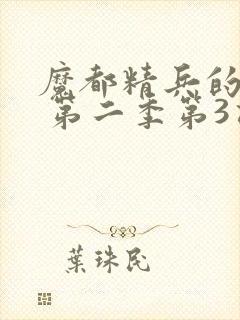 魔都精兵的
第二季第3
葉珠民